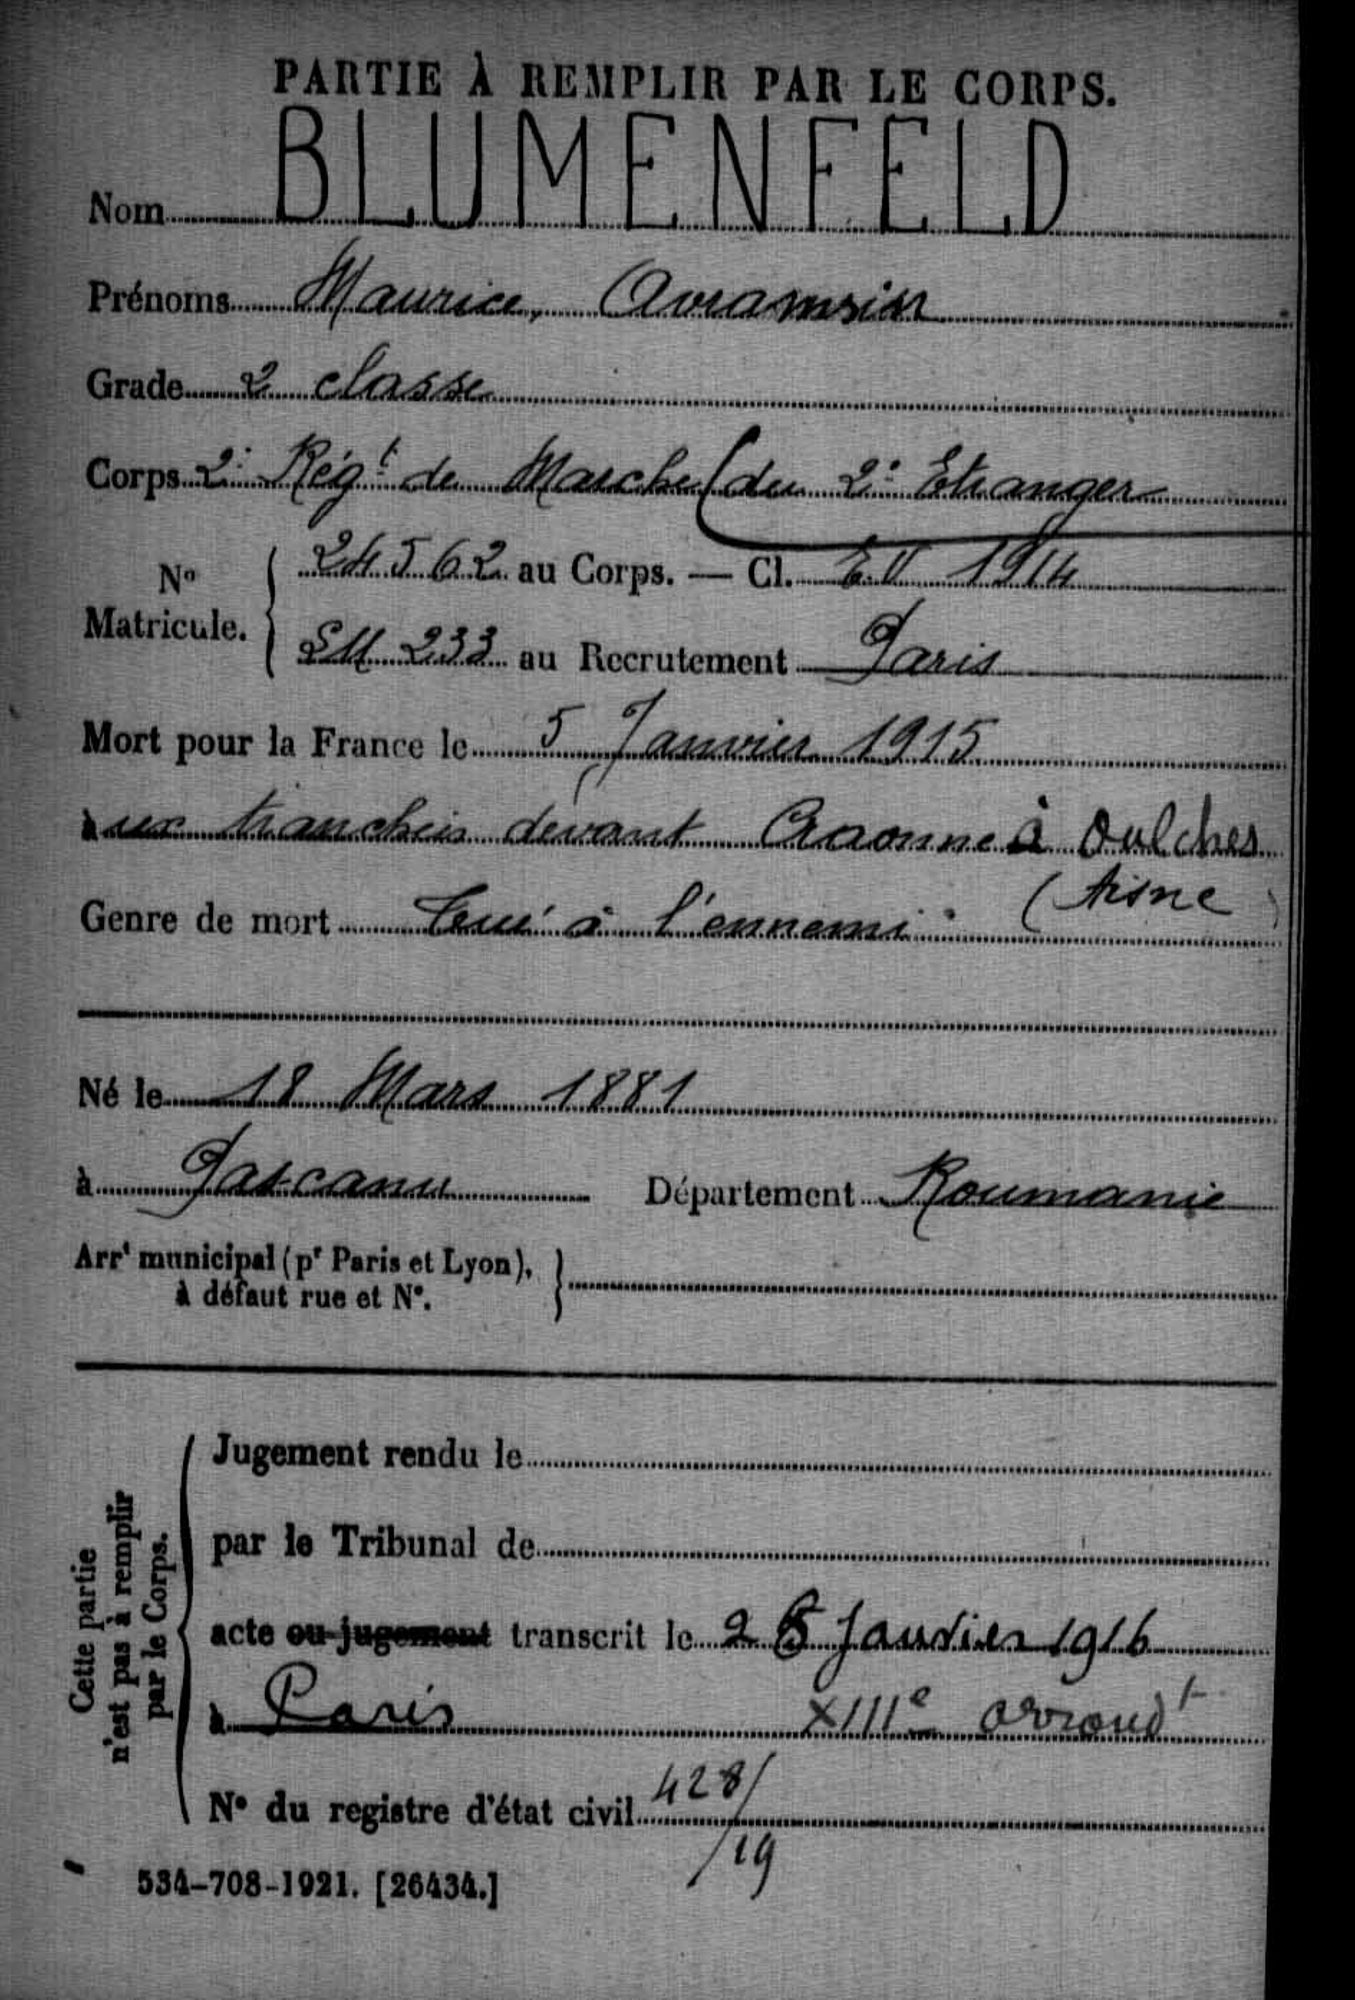 PARTIE À REMPLIR PAR LE CORPS.
Nom BLUMENFELD
Prénoms Maurice, 
Grade 2 classe
Corps 2e Régt de Marche (du 2e Etranger
No Matricule. { 24562 au Corps. — Cl. EV 1914
SM 233 au Recrutement Paris
Mort pour la France le 5 Janvier 1915
aux tranchées devant Craonne à Oulches
(Aisne)
Genre de mort Tué à l'ennemi
Né le 18 Mars 1881
à Pascanu Département Roumanie
Arrt municipal (pr Paris et Lyon),
à défaut rue et No.
Cette partie
n'est pas à remplir
par le Corps.
Jugement rendu le
par le Tribunal de
acte ou jugement transcrit le 26 Janvier 1916
à Paris XIIIe arrondt
No du registre d'état civil 428/
/19
534-708-1921. [26434.]